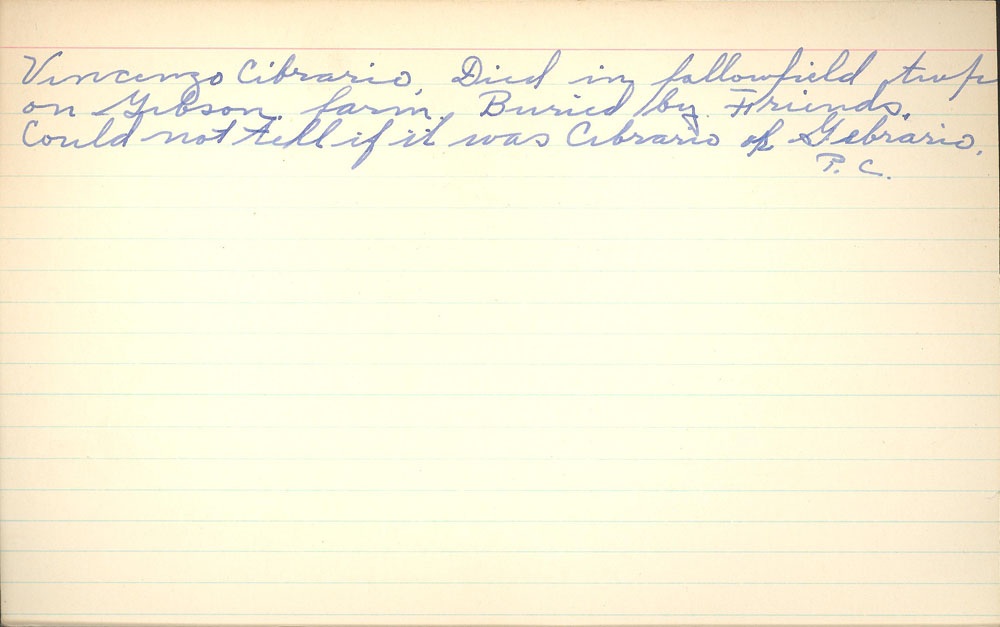 Vincenzo Cibrario. Died in fallowfield twp
on Gibson farm. Buried by Friends.
Could not tell if it was Cibrario or Gebrario.
P. C.